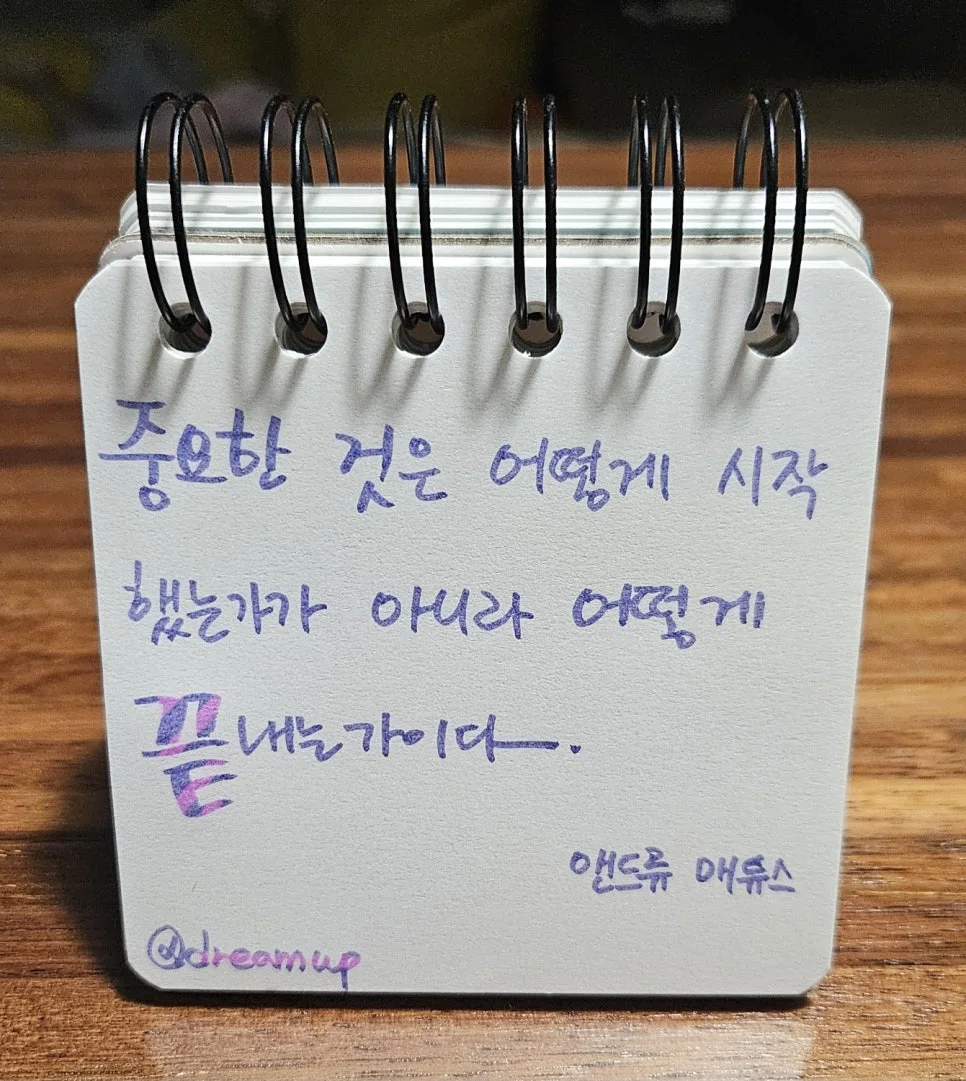 중요한 것은 어떻게 시작
했는가가 아니라 어떻게
끝내는가이다.
앤드류 매튜스
@dreamup